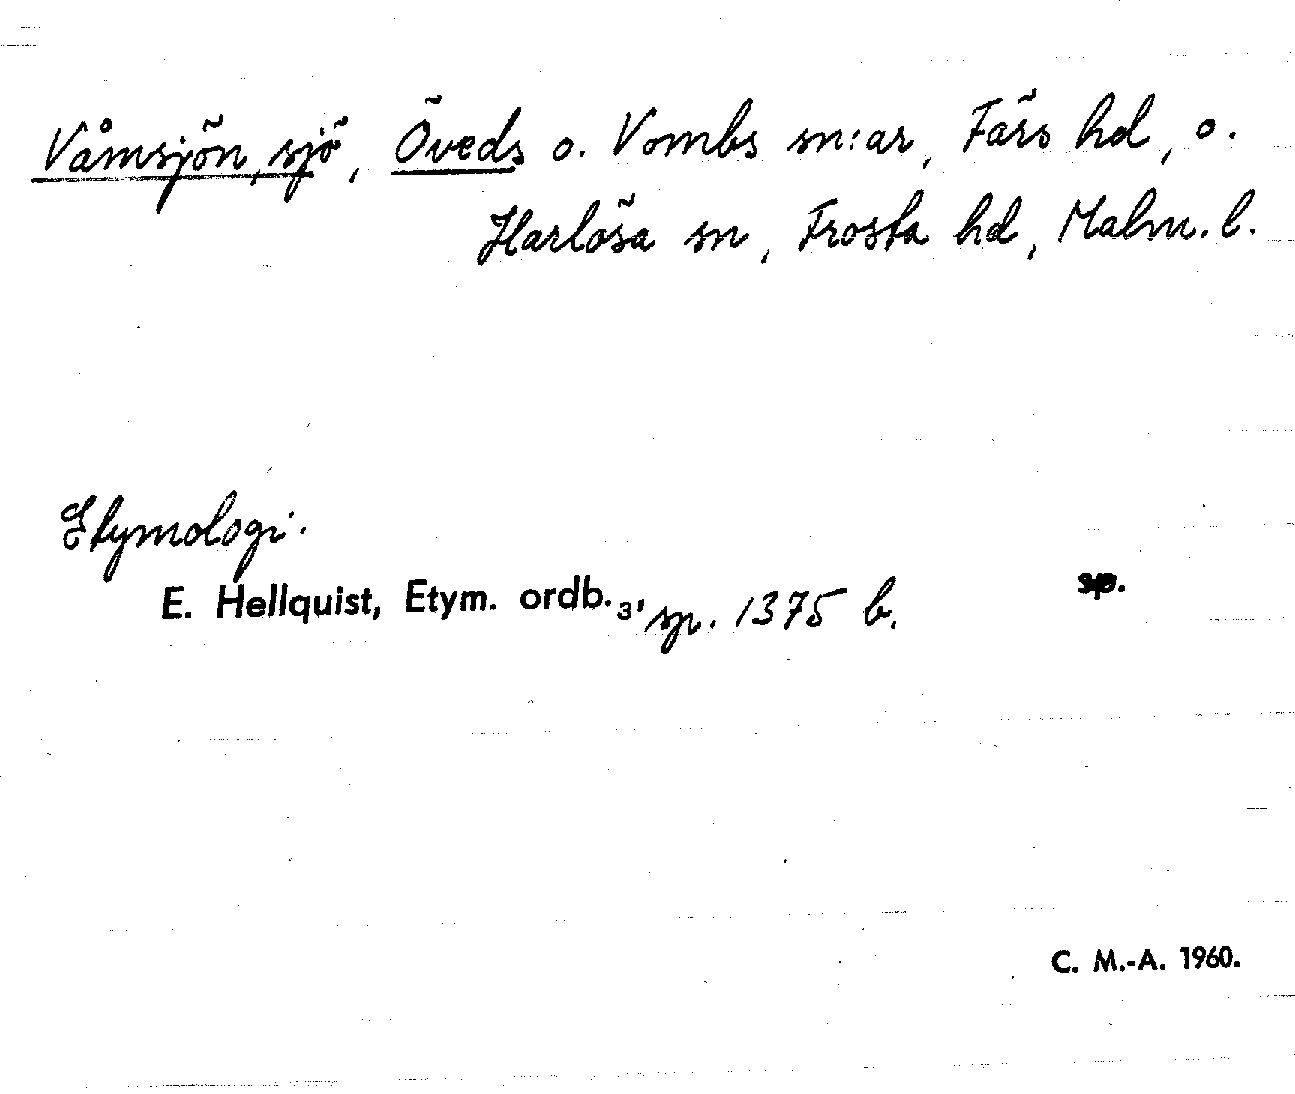 Våmsjön, sjö, Öveds o. Vombs sn:ar, Färs hd, o.
Harlösa sn, Frosta hd, Malm. l.
Etymologi.
E. Hellquist, Etym. ordb.₃, sp. 1375 b. sp.
C. M.-A. 1960.